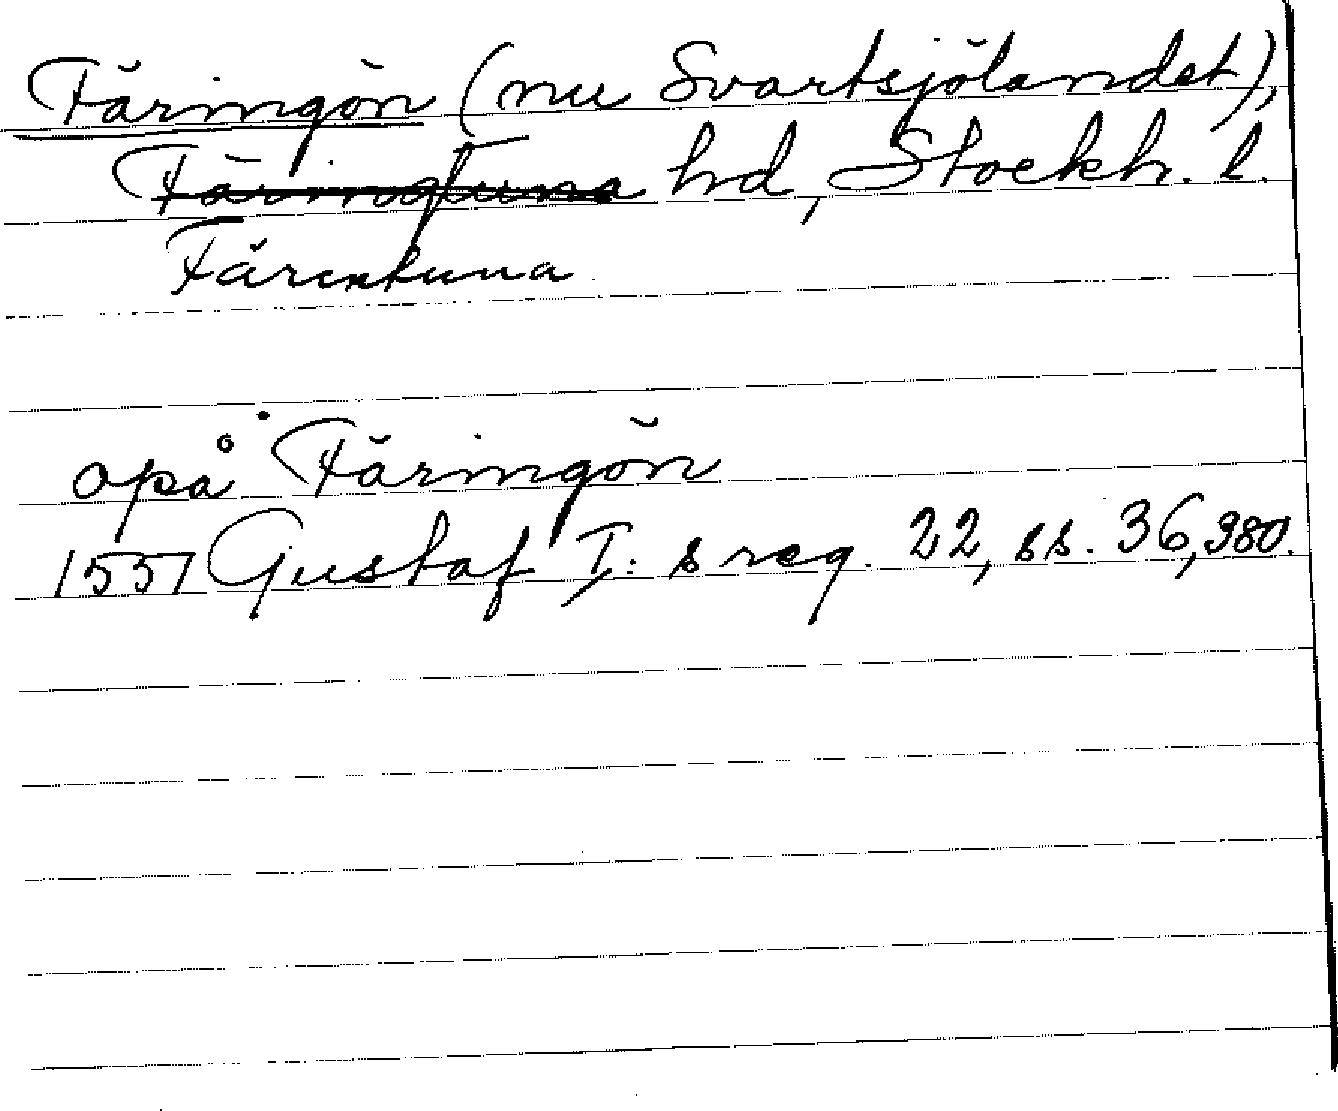 Färingön (nu Svartsjölandet),
Färingtuna hd, Stockh. l.
Färentuna
opå Färingön
1557 Gustaf I:s reg. 22, ss. 36, 380.